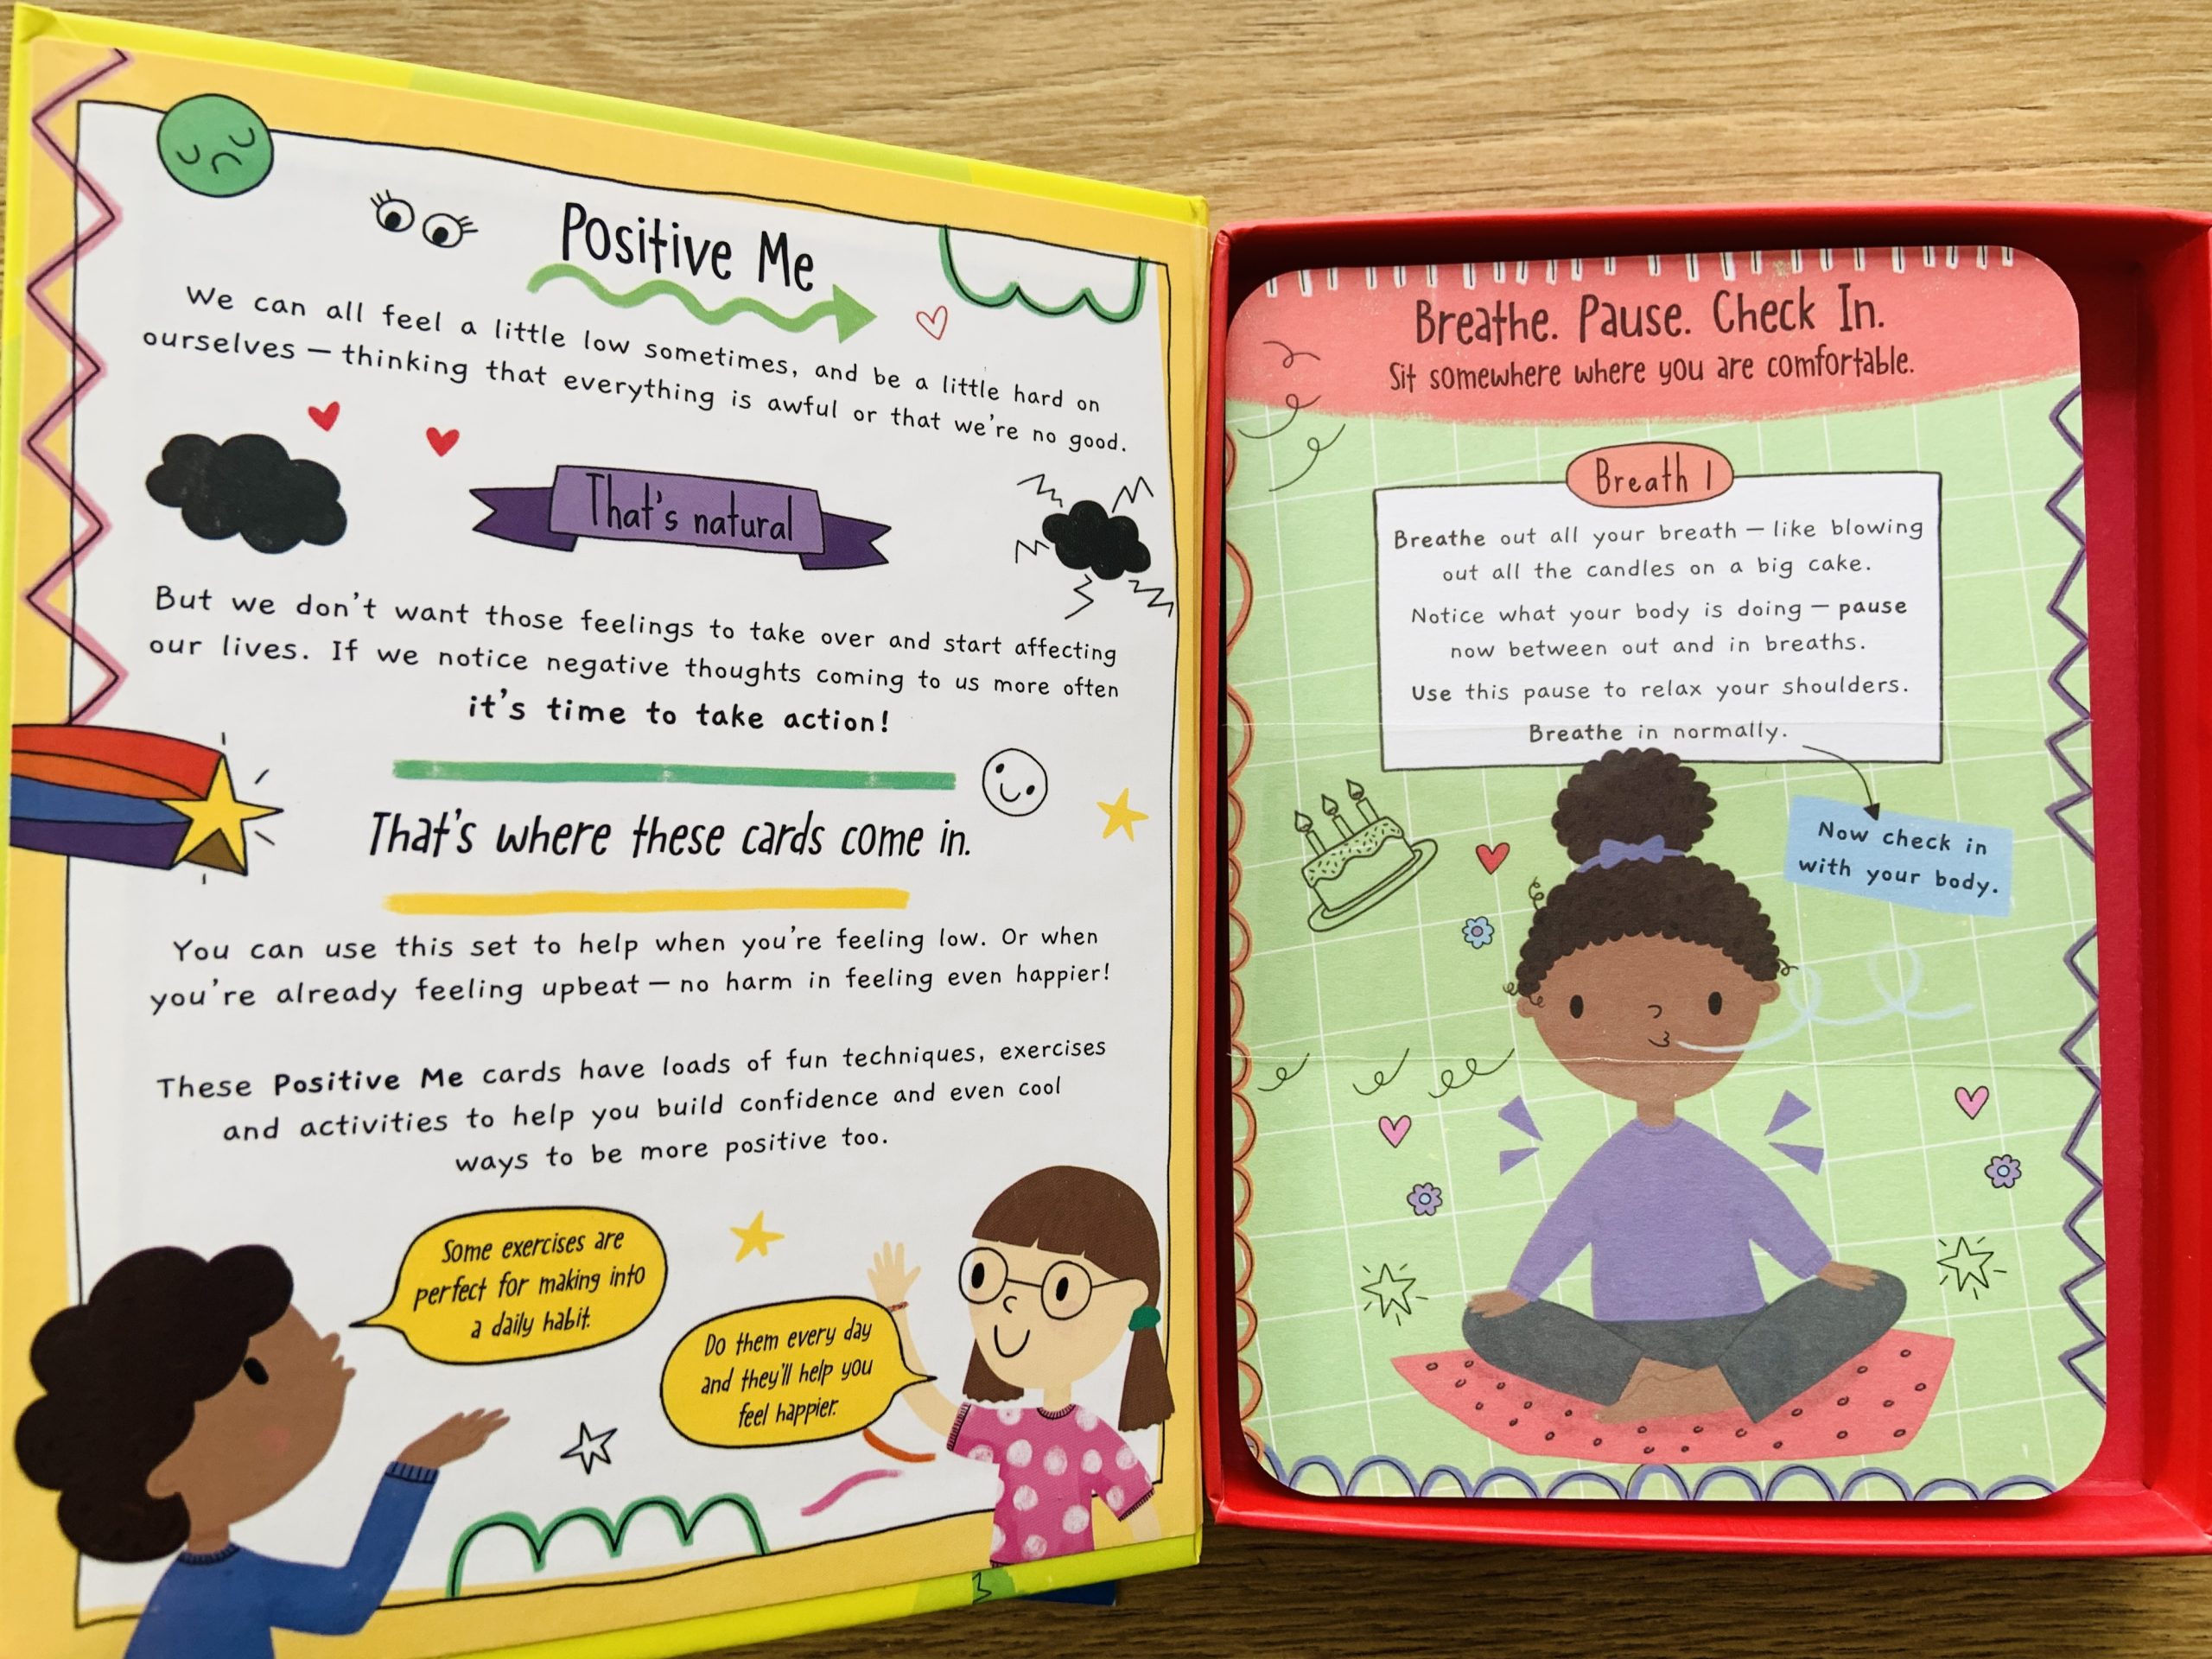 Positive Me
We can all feel a little low sometimes, and be a little hard on
ourselves — thinking that everything is awful or that we're no good.
That's natural
But we don't want those feelings to take over and start affecting
our lives. If we notice negative thoughts coming to us more often
it's time to take action!
That's where these cards come in.
You can use this set to help when you're feeling low. Or when
you're already feeling upbeat — no harm in feeling even happier!
These Positive Me cards have loads of fun techniques, exercises
and activities to help you build confidence and even cool
ways to be more positive too.
Some exercises are
perfect for making into
a daily habit.
Do them every day
and they'll help you
feel happier.
Breathe. Pause. Check In.
Sit somewhere where you are comfortable.
Breath 1
Breathe out all your breath — like blowing
out all the candles on a big cake.
Notice what your body is doing — pause
now between out and in breaths.
Use this pause to relax your shoulders.
Breathe in normally.
Now check in
with your body.